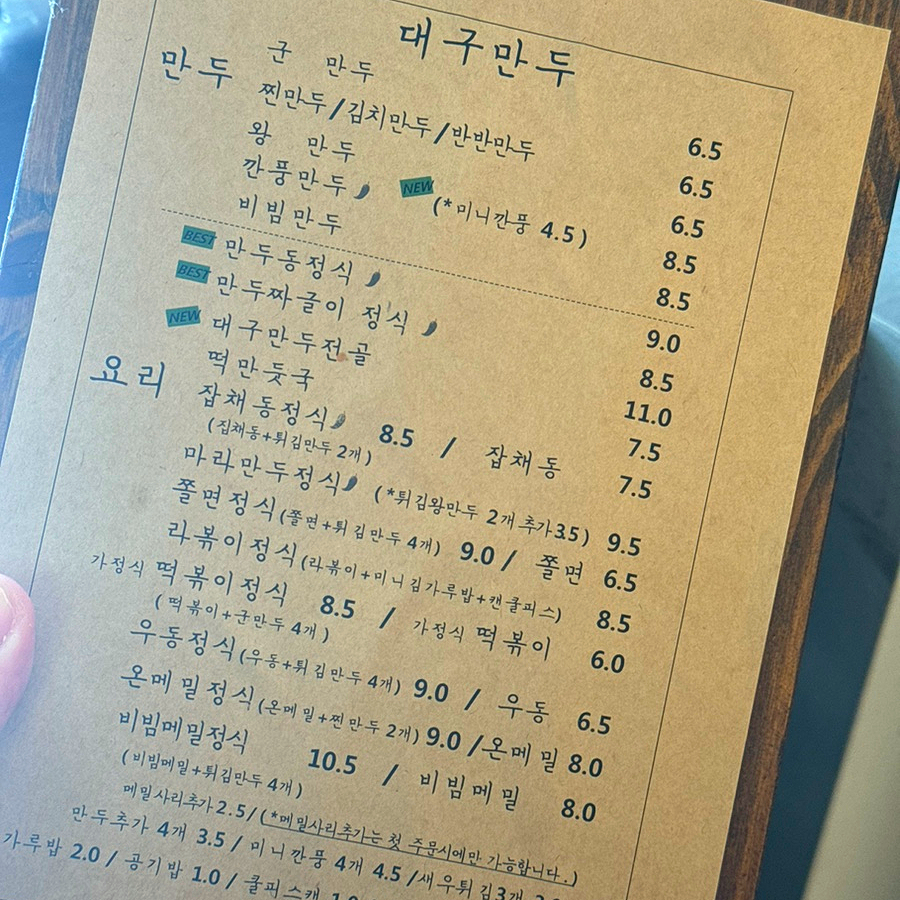 대구만두
만두
군 만두 6.5
찐만두/김치만두/반반만두 6.5
왕 만두 6.5
깐풍만두 NEW (*미니깐풍 4.5) 8.5
비빔만두 8.5
요리
BEST 만두동정식 9.0
BEST 만두짜글이 정식 8.5
NEW 대구만두전골 11.0
떡만둣국 7.5
잡채동정식 8.5 / 잡채동 7.5
(집채동+튀김만두 2개)
마라만두정식 (*튀김왕만두 2개 추가3.5) 9.5
쫄면정식(쫄면+튀김만두 4개) 9.0 / 쫄면 6.5
라볶이정식(라볶이+미니김가루밥+캔쿨피스) 8.5
가정식 떡볶이정식 8.5 / 가정식 떡볶이 6.0
(떡볶이+군만두 4개)
우동정식(우동+튀김만두 4개) 9.0 / 우동 6.5
온메밀정식(온메밀+찐만두 2개) 9.0 /온메밀 8.0
비빔메밀정식 10.5 / 비빔메밀 8.0
(비빔메밀+튀김만두 4개)
메밀사리추가 2.5/(*메밀사리추가는 첫 주문시에만 가능합니다.)
만두추가 4개 3.5 / 미니깐풍 4개 4.5 /새우튀김3개
가루밥 2.0 / 공기밥 1.0 / 쿨피스캔